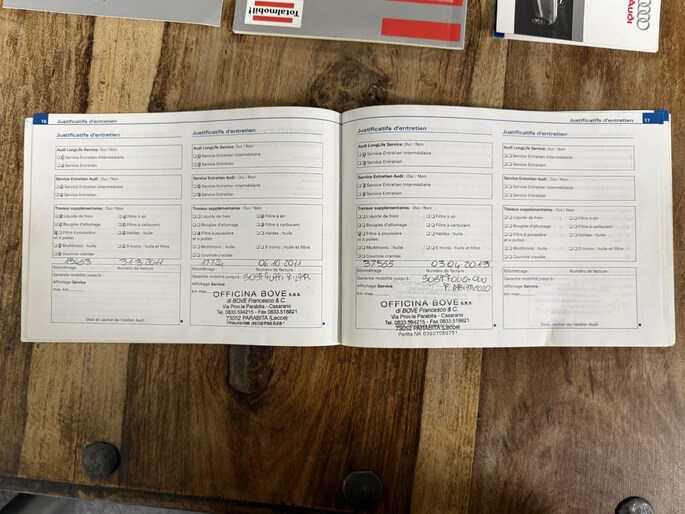 Totalmobil!
Audi
16 Justificatifs d'entretien
Justificatifs d'entretien
Audi LongLife Service: Oui / Non
Service Entretien Intermédiaire
Service Entretien
Service Entretien Audi : Oui / Non
Service Entretien Intermédiaire
Service Entretien
Travaux supplémentaires : Oui / Non
Liquide de frein Filtre à air
Bougies d'allumage Filtre à carburant
Filtre à poussière et à pollen Haldex : huile
Multitronic : huile S tronic : huile et filtre
Courroie crantée
31.3.2011
Kilométrage Numéro de facture :
Garantie mobilité jusqu'à :
Affichage Service
max. km
Date et cachet de l'atelier Audi
Justificatifs d'entretien
Audi LongLife Service : Oui / Non
Service Entretien Intermédiaire
Service Entretien
Service Entretien Audi : Oui / Non
Service Entretien Intermédiaire
Service Entretien
Travaux supplémentaires : Oui / Non
Liquide de frein Filtre à air
Bougies d'allumage Filtre à carburant
Filtre à poussière et à pollen Haldex : huile
Multitronic : huile S tronic : huile et filtre
Courroie crantée
06.10.2011
Kilométrage : Numéro de facture :
Garantie mobilité jusqu'à :
Affichage Service
OFFICINA BOVE s.a.s.
di BOVE Francesco & C.
Via Prov.le Parabita - Casarano
Tel. 0833.594215 - Fax 0833.518821
73052 PARABITA (Lecce)
Justificatifs d'entretien 17
Justificatifs d'entretien
Audi LongLife Service: Oui / Non
Service Entretien Intermédiaire
Service Entretien
Service Entretien Audi : Oui / Non
Service Entretien Intermédiaire
Service Entretien
Travaux supplémentaires : Oui / Non
Liquide de frein Filtre à air
Bougies d'allumage Filtre à carburant
Filtre à poussière et à pollen Haldex : huile
Multitronic : huile S tronic : huile et filtre
Courroie crantée
37565 03.04.2013
Kilométrage : Numéro de facture :
Garantie mobilité jusqu'à :
Affichage Service
OFFICINA BOVE s.a.s.
di BOVE Francesco & C.
Via Prov.le Parabita - Casarano
Tel. 0833.594215 - Fax 0833.518821
73052 PARABITA (Lecce)
Partita IVA
Justificatifs d'entretien
Audi LongLife Service : Oui / Non
Service Entretien Intermédiaire
Service Entretien
Service Entretien Audi : Oui / Non
Service Entretien Intermédiaire
Service Entretien
Travaux supplémentaires : Oui / Non
Liquide de frein Filtre à air
Bougies d'allumage Filtre à carburant
Filtre à poussière et à pollen Haldex : huile
Multitronic : huile S tronic : huile et filtre
Courroie crantée
Kilométrage : Numéro de facture :
Garantie mobilité jusqu'à :
Affichage Service
max. km
Date et cachet de l'atelier Audi